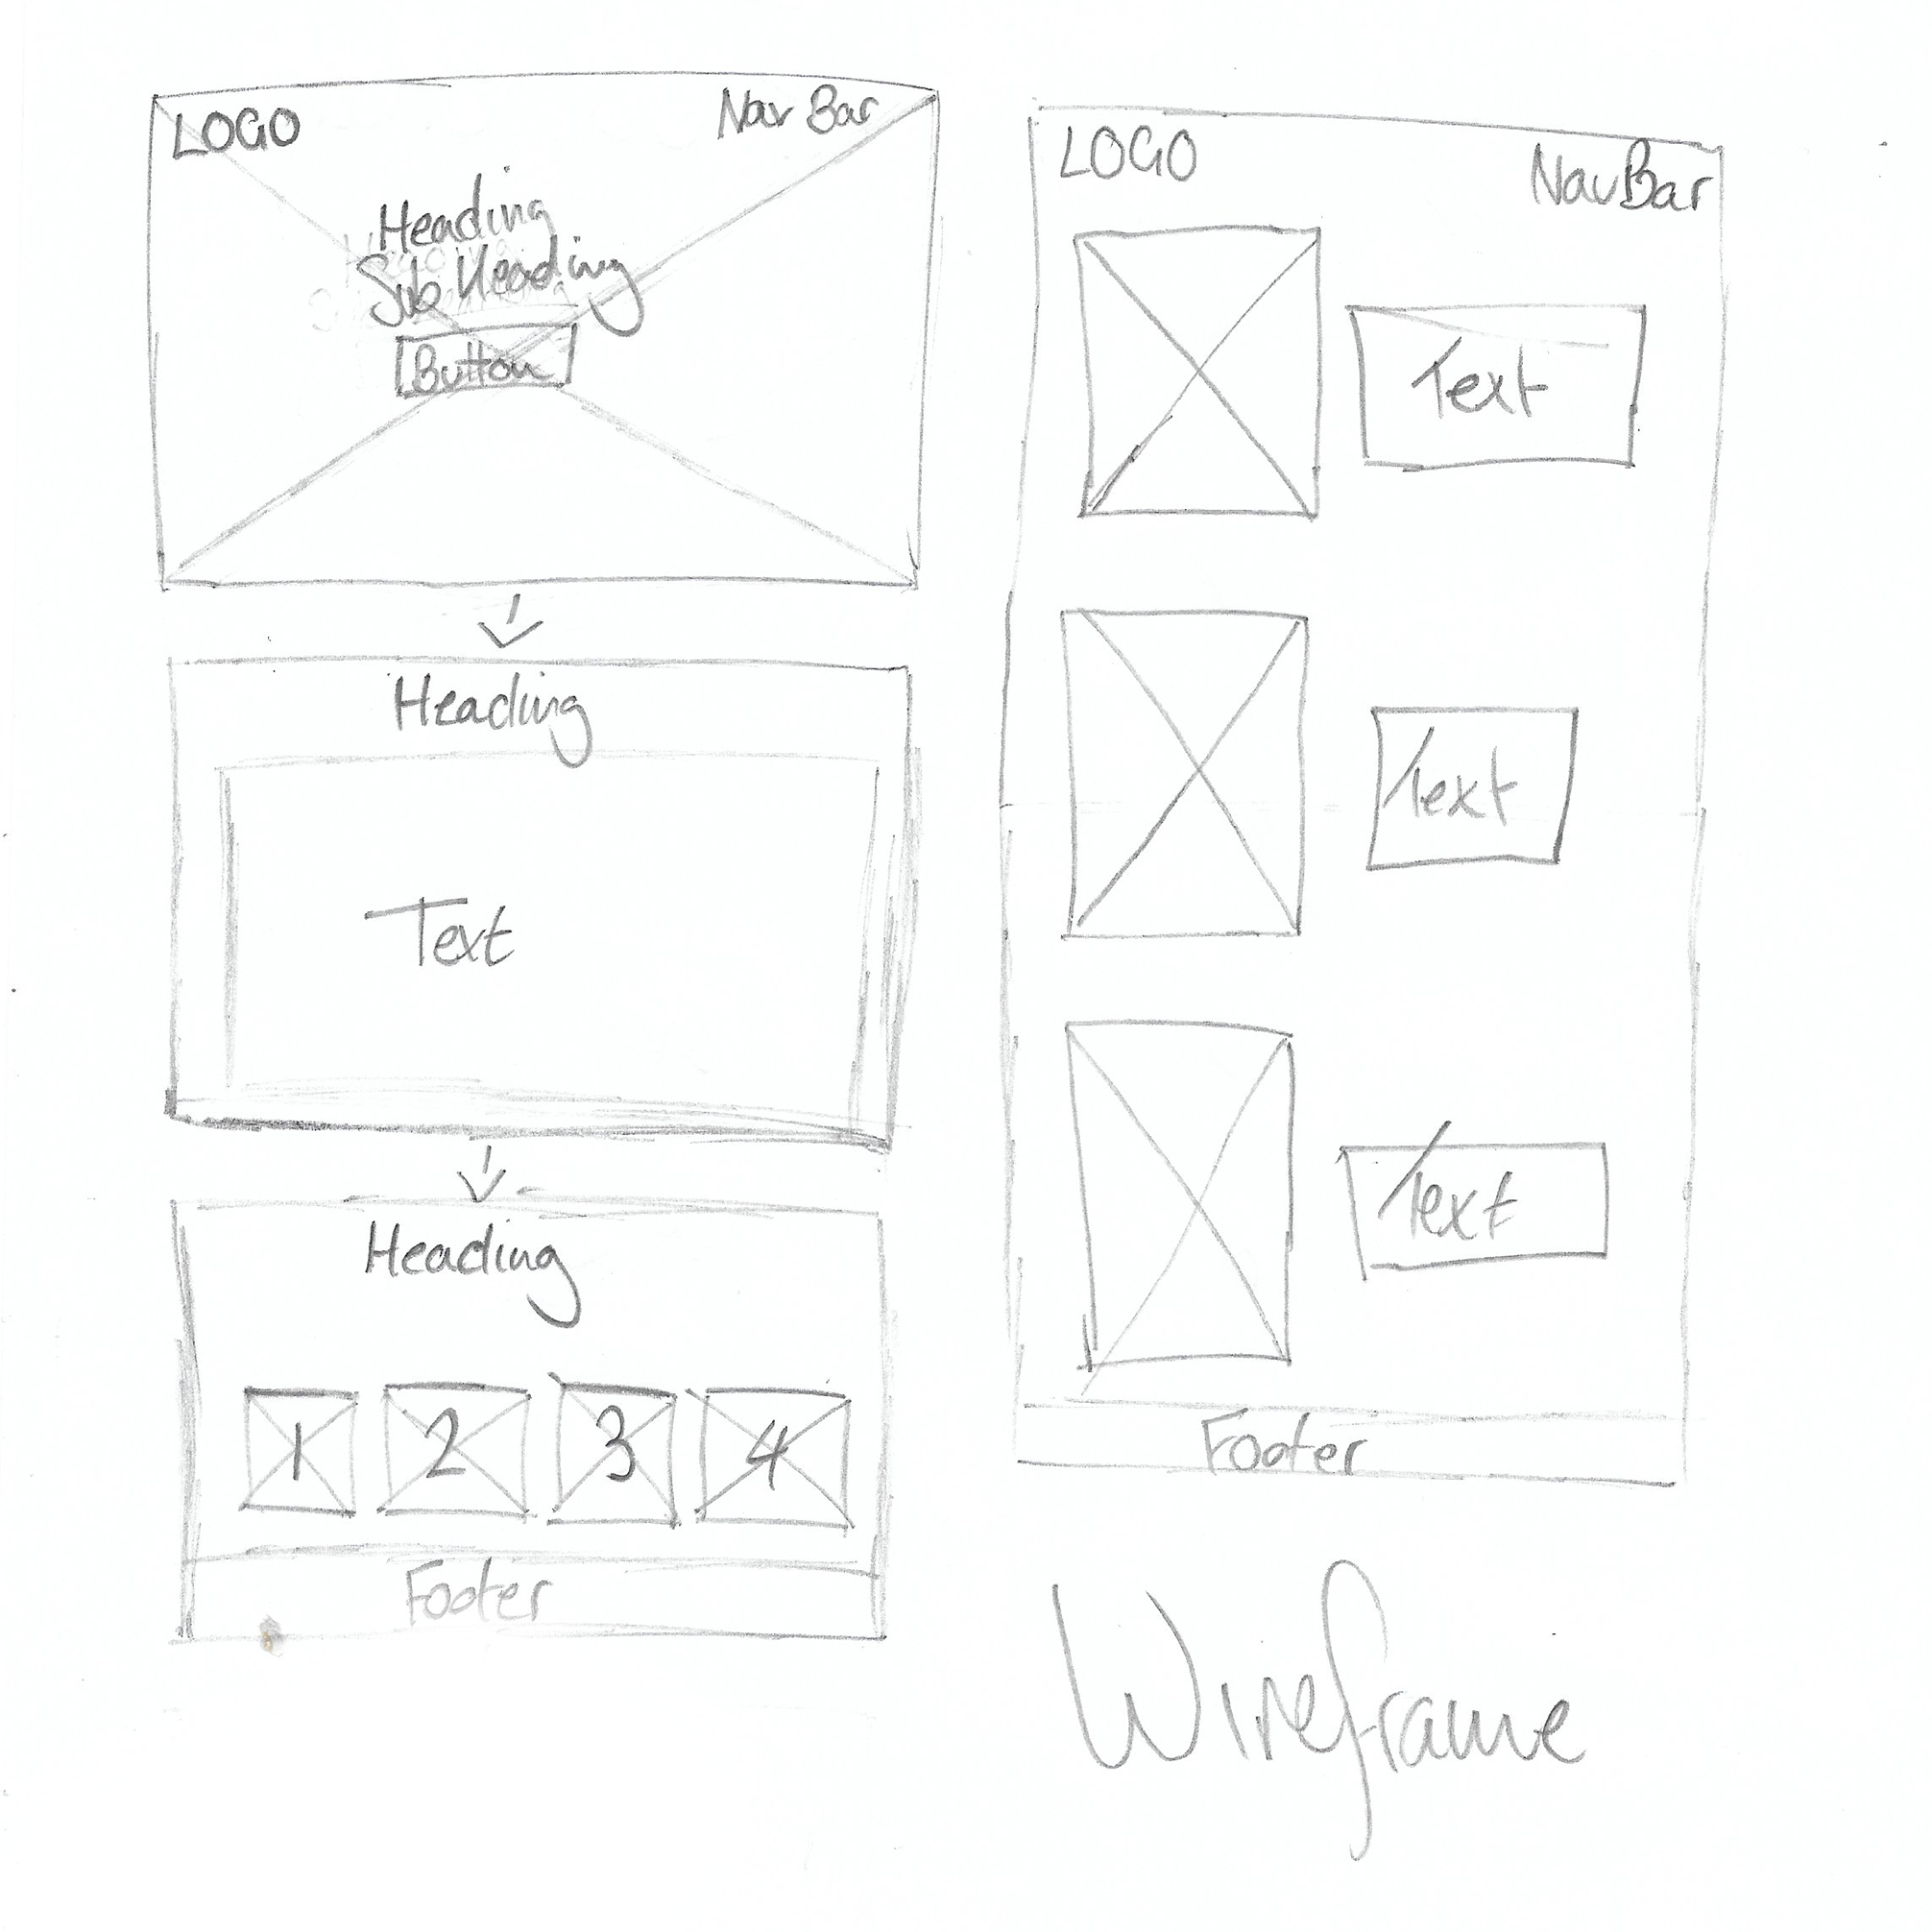 LOGO
Nav Bar
Heading
Sub Heading
Button
Heading
Text
Heading
1 2 3 4
Footer
LOGO
NavBar
Text
Text
Text
Footer
Wireframe